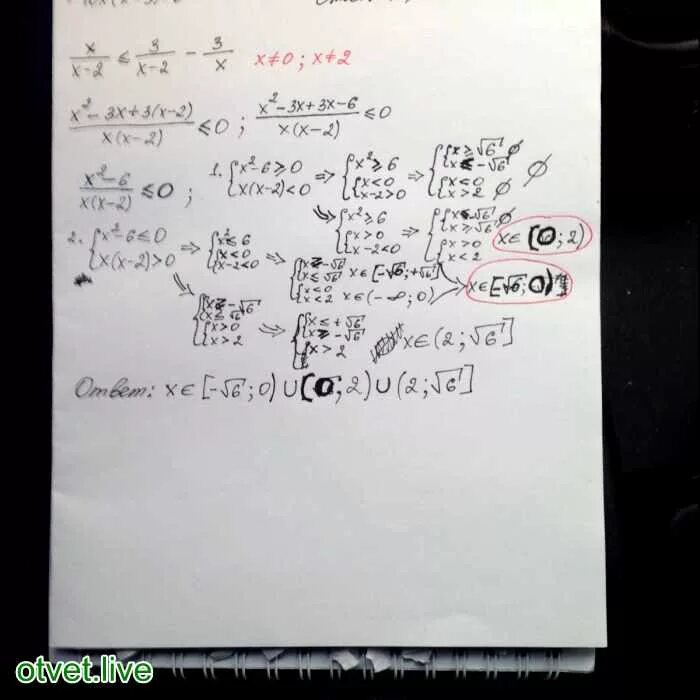 x/(x-2) ≤ 3/(x-2) - 3/x x≠0; x≠2
(x²-3x+3(x-2))/(x(x-2)) ≤0; (x²-3x+3x-6)/(x(x-2)) ≤0
(x²-6)/(x(x-2)) ≤0; 1. {x²-6≥0 x(x-2)<0 ⇒ {x²≥6 {x<0 x-2>0 ⇒ {x≥√6 x≤-√6 ∅ {x<0 x>2 ∅ ∅
⇒ {x²≥6 {x>0 x-2<0 ⇒ {x≤-√6 x≥√6 ∅ {x>0 x<2 x∈(0;2)
2. {x²-6≤0 x(x-2)>0 ⇒ {x²≤6 {x<0 x-2<0 ⇒ {x≥-√6 x≤√6 x∈[-√6;+√6] {x<0 x<2 x∈(-∞;0) x∈[-√6;0)
⇒ {x≥-√6 x≤√6 {x>0 x>2 ⇒ {x≤+√6 x≥-√6 {x>2 x∈(2;√6]
Ответ: x∈[-√6;0)∪(0;2)∪(2;√6]
otvet.live